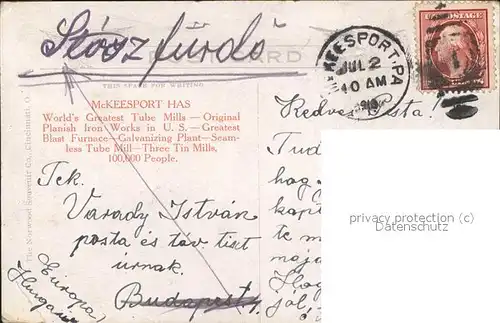 Stósz fürdő
THIS SPACE FOR WRITING.
McKEESPORT, PA
JUL 2
10 AM
U.S. POSTAGE
McKEESPORT HAS
World's Greatest Tube Mills — Original
Planish Iron Works in U. S. — Greatest
Blast Furnace—Galvanizing Plant—Seam-
less Tube Mill—Three Tin Mills,
100,000 People.
The Norwood Souvenir Co., Cincinnati, O.
Tek.
Várady István
posta és táv. tiszt
úrnak.
Budapest
Európa!
Hungaria
Kedves Pista!
Tud
hog
kapt
te m
mája
Hog
jól,
privacy protection (c)
Datenschutz